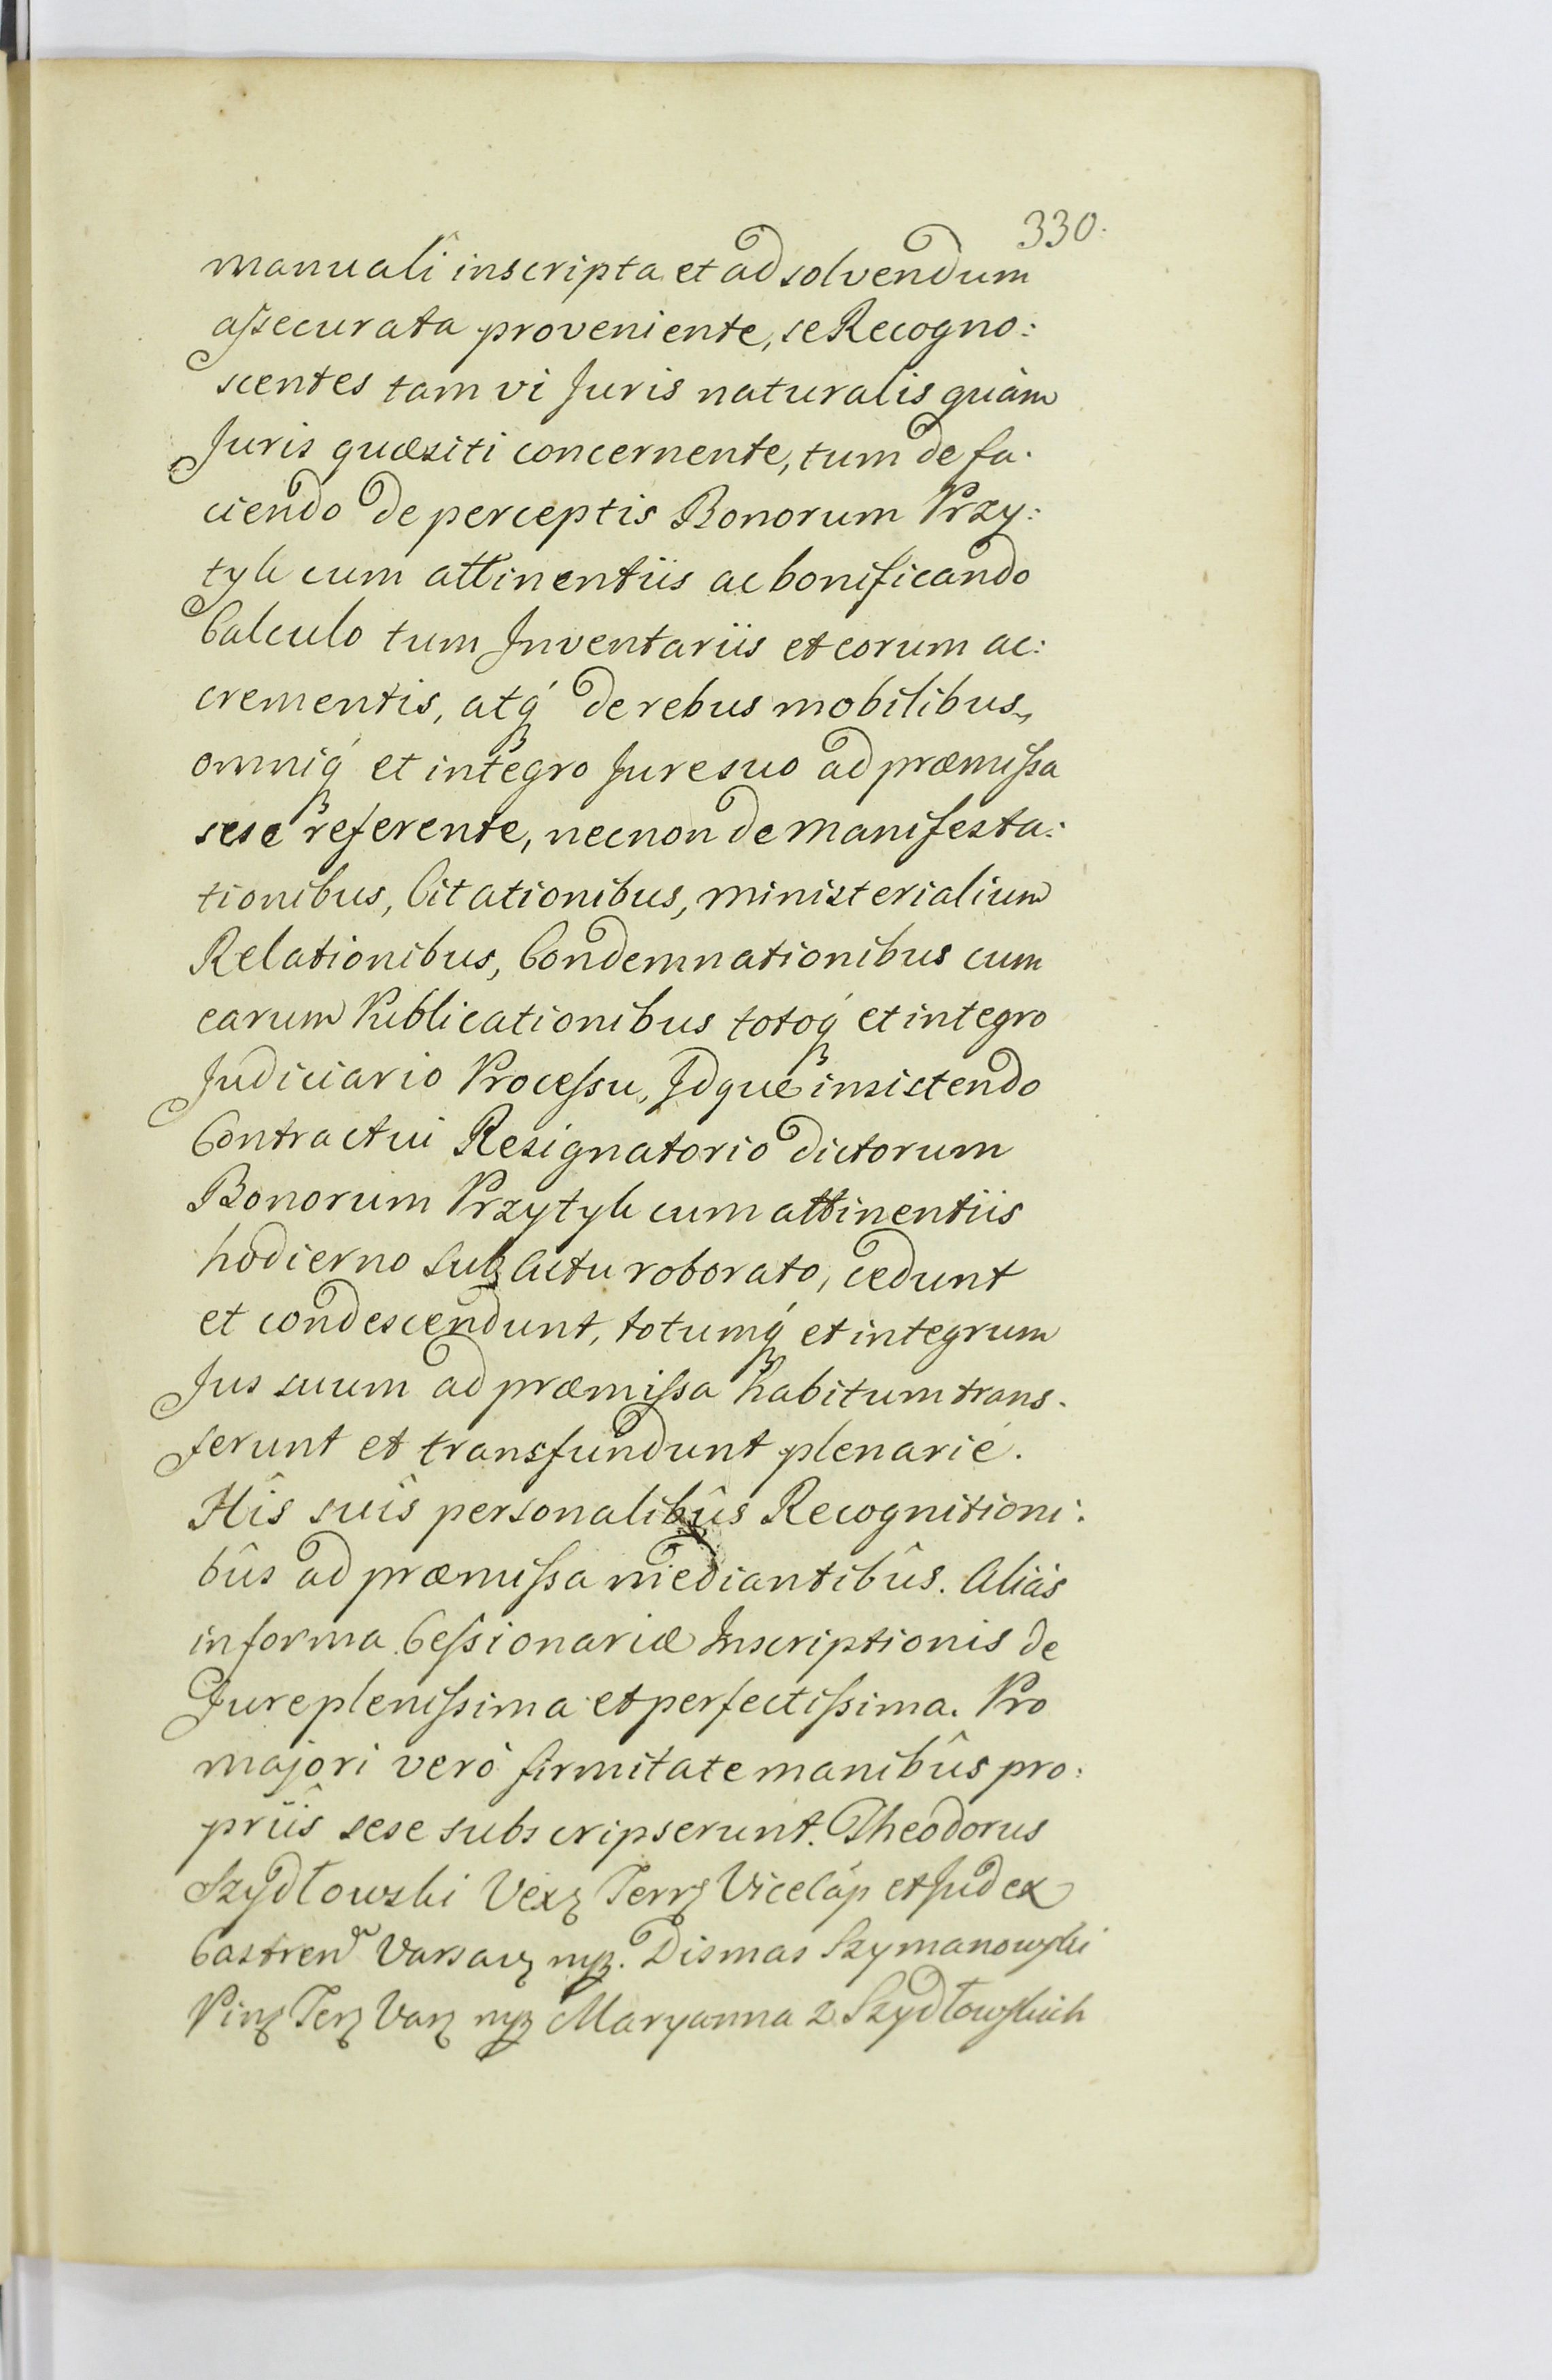 330.
manuali inscripta et ad solvendum
aſsecurata proveniente, se Recogno:
scentes tam vi Juris naturalis quàm
Juris quæsiti concernente, tum de fa:
ciendo de perceptis Bonorum Przy:
tyk cum attinentiis ac bonificando
Calculo tum Inventariis et eorum ac:
crementis, atq́ꝫ de rebus mobilibus,
omniq́ꝫ et integro Jure suo ad præmiſsa
sese referente, necnon de Manifesta:
tionibus, Citationibus, Ministerialium
Relationibus, Condemnationibus cum
earum Publicationibus totoq́ꝫ et integro
Judiciario Proceſsu, Idque insistendo
Contractui Resignatorio dictorum
Bonorum Przytyk cum attinentiis
hodierno sub Actu roborato, cedunt
et condescendunt, totumq́ꝫ et integrum
Jus suum ad præmiſsa habitum trans:
ferunt et transfundunt plenarié.
Hîs suîs personalibûs Recognitioni:
bûs ad præmiſsa mediantibûs. Aliàs
in forma Ceſsionariæ Inscriptionis de
Jure pleniſsima et perfectiſsima. Pro
majori verò firmitate manibûs pro:
priîs sese subscripserunt. Theodorus
Szydłowski Vexꝫ Terrꝫ Vicecap et Judex
Castren Varsavꝫ mpꝫ. Dismas Szymanowski
Pinꝫ Terꝫ Varꝫ mpꝫ Maryanna z Szydłowskich